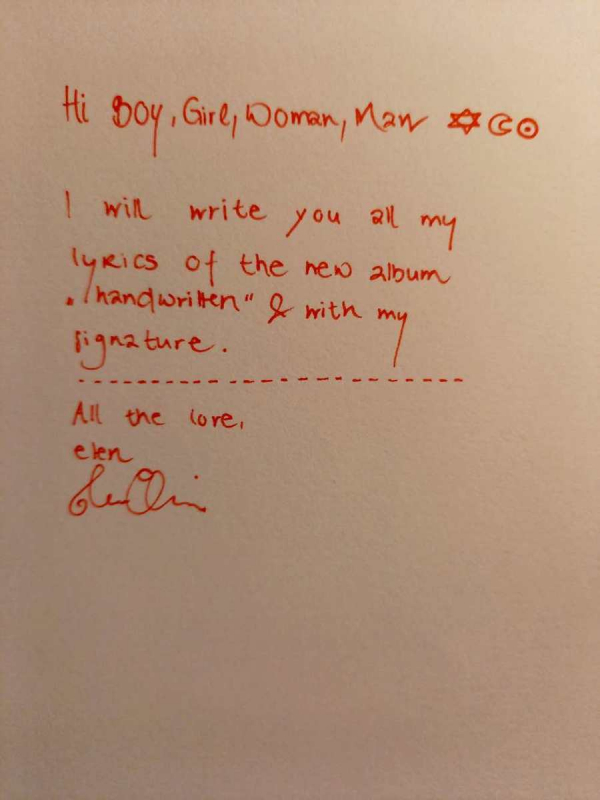 Hi Boy, Girl, Woman, Man ✡☾☉
I will write you all my
lyrics of the new album
„handwritten" & with my
signature.
All the love,
elen